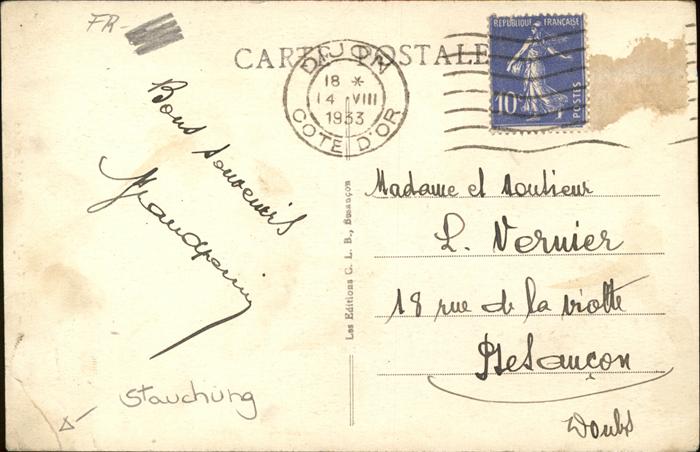 FR-
CARTE POSTALE
DIJON
18 *
14 VIII
1933
COTE D'OR
REPUBLIQUE FRANÇAISE
10c
POSTES
Bons souvenirs
Les Editions C. L. B., Besançon
Madame et Monsieur
L. Vernier
18 rue de la Viotte
Besançon
Doubs
Stauchung